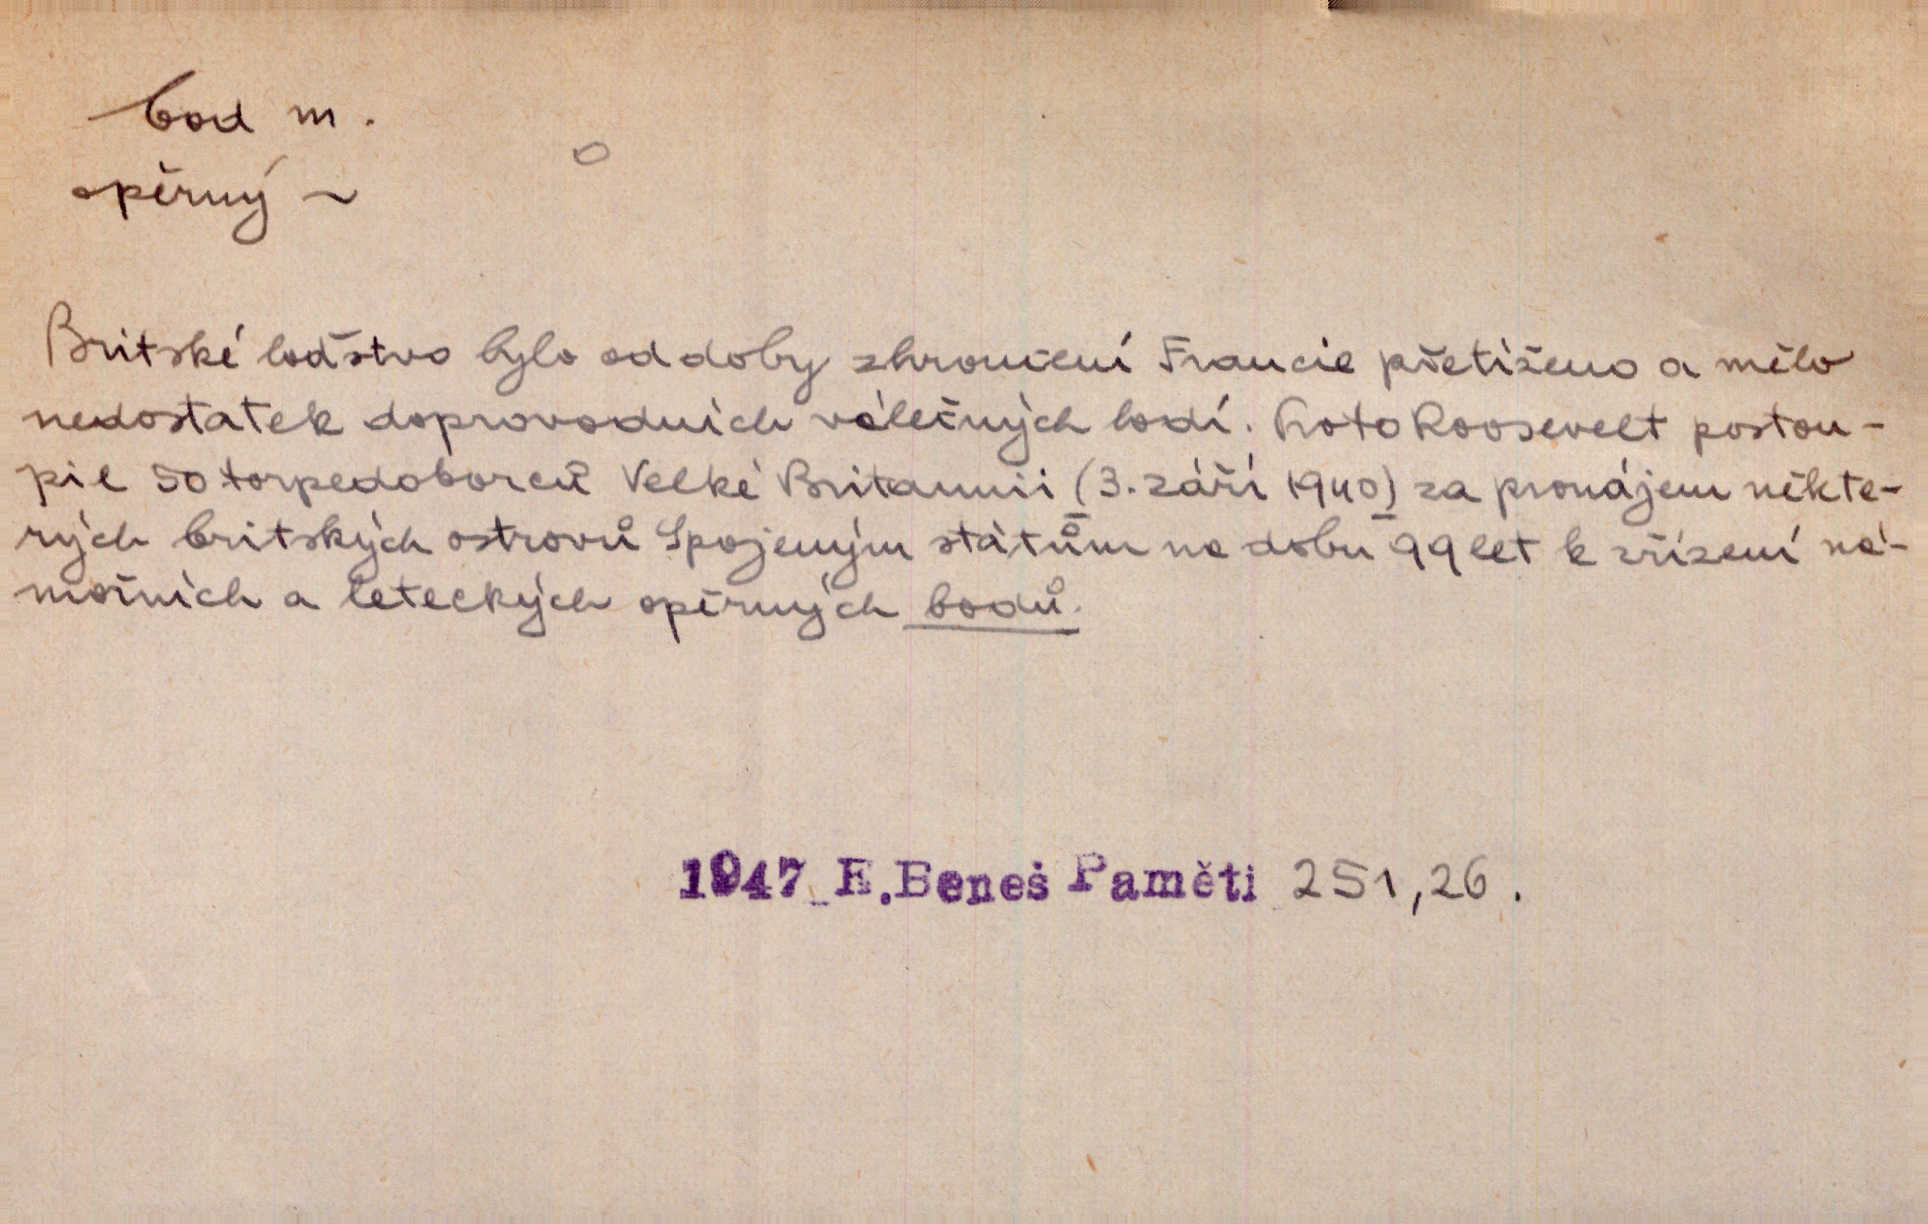 bod m.
opěrný ~
Britské loďstvo bylo od doby zhroucení Francie přetíženo a mělo
nedostatek doprovodních válečných lodí. Proto Roosevelt postou-
pil 50 torpedoborců Velké Britannii (3. září 1940) za pronájem někte-
rých britských ostrovů Spojeným státům na dobu 99 let k zřízení ná-
mořních a leteckých opěrných bodů.
1947 E. Beneš Paměti 251,26.